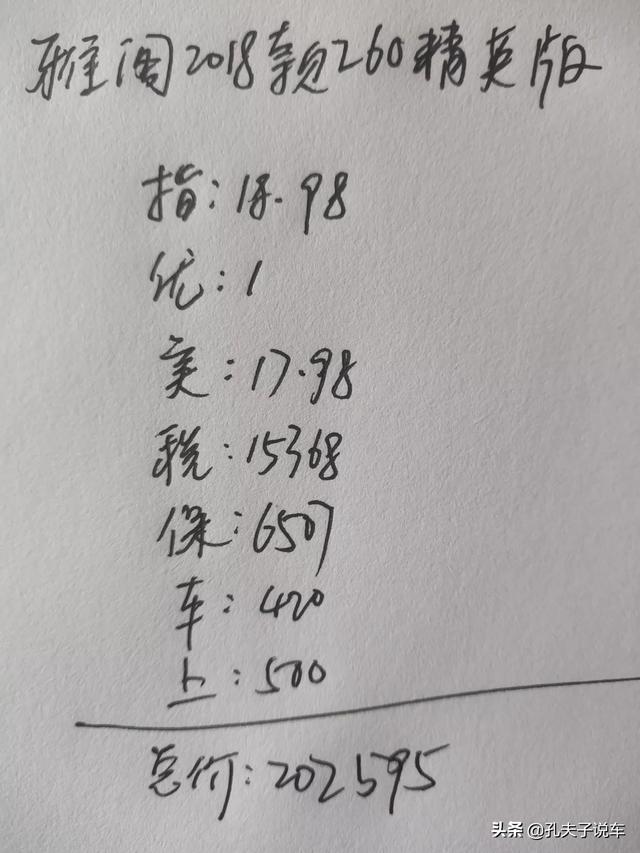 雅阁2018款260精英版
指:18.98
优:1
实:17.98
税:15368
保:6507
车:420
上:500
总价:202595
头条 @孔夫子说车